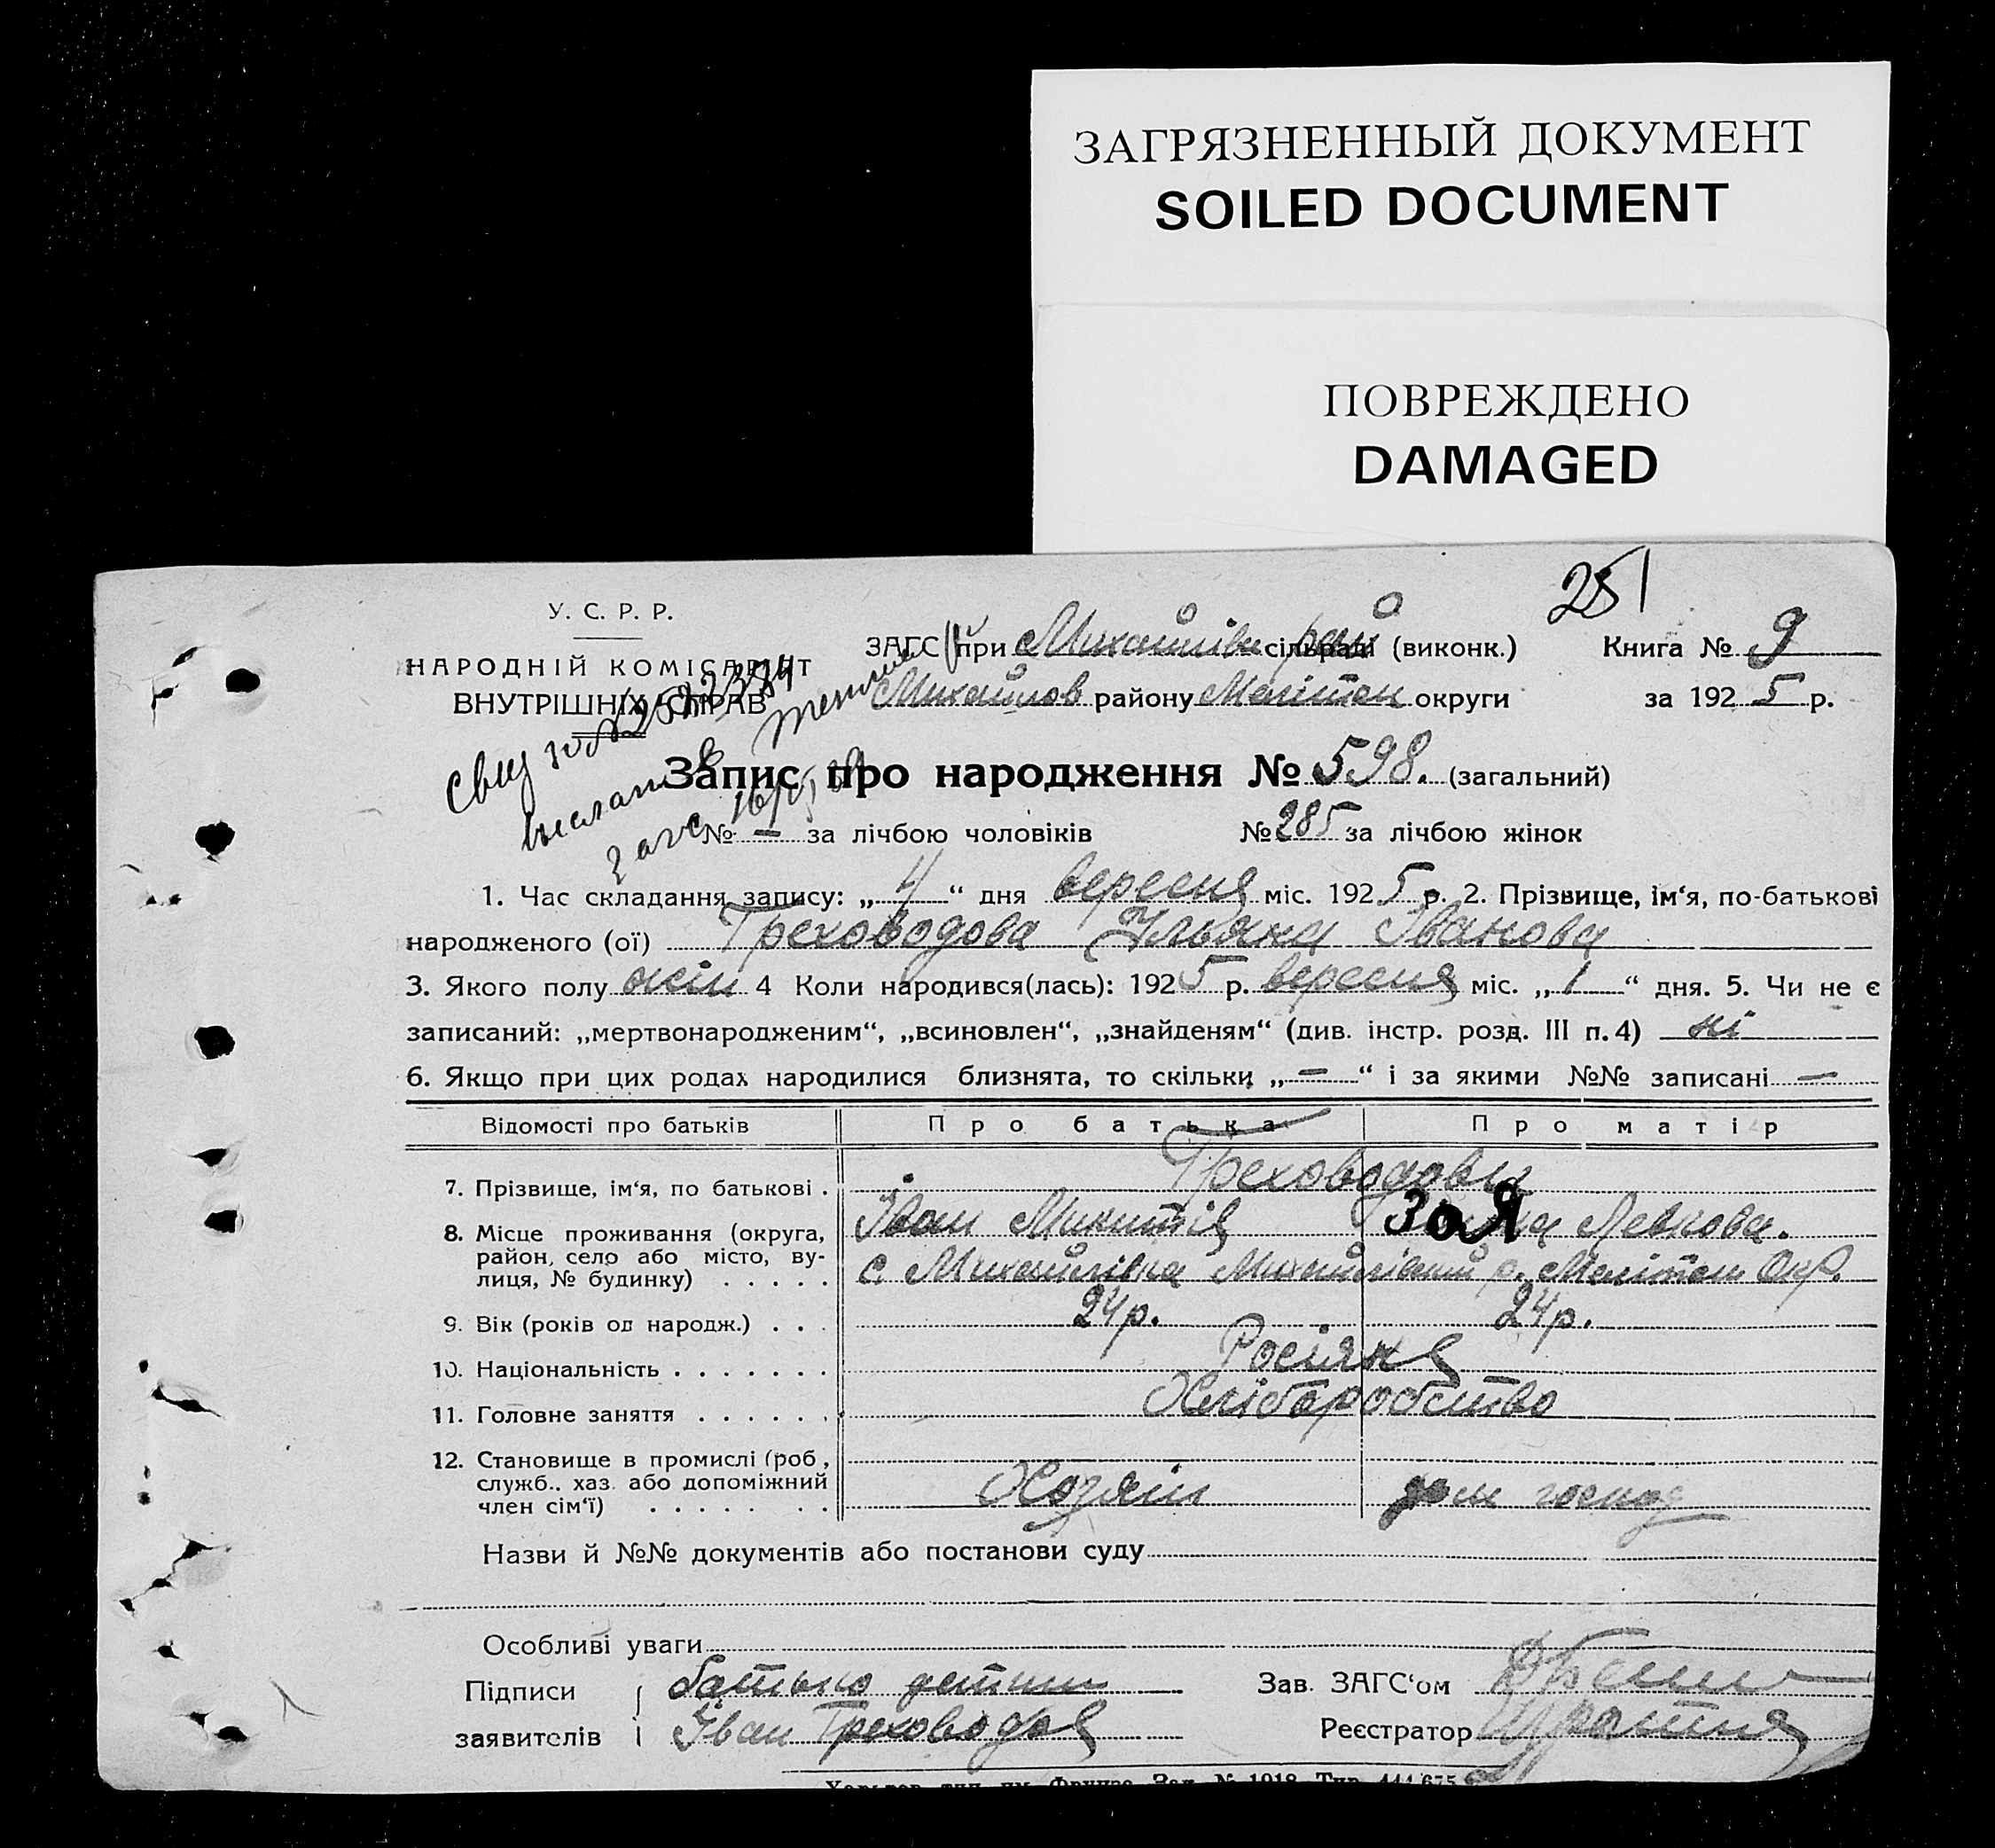 ЗАГРЯЗНЕННЫЙ ДОКУМЕНТ
SOILED DOCUMENT
ПОВРЕЖДЕНО
DAMAGED
251
У. С. Р. Р.
НАРОДНІЙ КОМІСАРІЯТ
ВНУТРІШНІХ СПРАВ
ЗАГС при Михайлівс сільраді рай (виконк.) Книга № 9
Михайлов району Мелітоп округи за 1925 р.
Запис про народження № 598. (загальний)
№ — за лічбою чоловіків № 285 за лічбою жінок
1. Час складання запису: „4“ дня вересня міс. 1925 р. 2. Прізвище, ім‘я, по-батькові
народженого (ої) Греховодова Ульяна Іванова
3. Якого полу жін 4 Коли народився(лась): 1925 р. вересня міс. „1“ дня. 5. Чи не є
записаний: „мертвонародженим“, „всиновлен“, „знайденям“ (див. інстр. розд. III п. 4) ні
6. Якщо при цих родах народилися близнята, то скільки „—“ і за якими №№ записані —
Відомості про батьків Про батька Про матір
Греховодови
7. Прізвище, ім‘я, по батькові .
Іван Микитів Левкова.
8. Місце проживання (округа,
район, село або місто, ву-
лиця, № будинку) . . . . . с. Михайлівка Михайлівський р. Мелітоп Окр.
9. Вік (років од народж.) . . . 24 р. 24 р.
10. Національність . . . . . . . Росіяне
11. Головне заняття . . . . . . Хліборобство
12. Становище в промислі (роб.,
служб.. хаз. або допоміжний
член сім‘ї) . . . . . . . Хозяін дом господ
Назви й №№ документів або постанови суду
Особливі уваги
Підписи батько дитини Зав. ЗАГС‘ом
заявителів Іван Греховодов Реєстратор